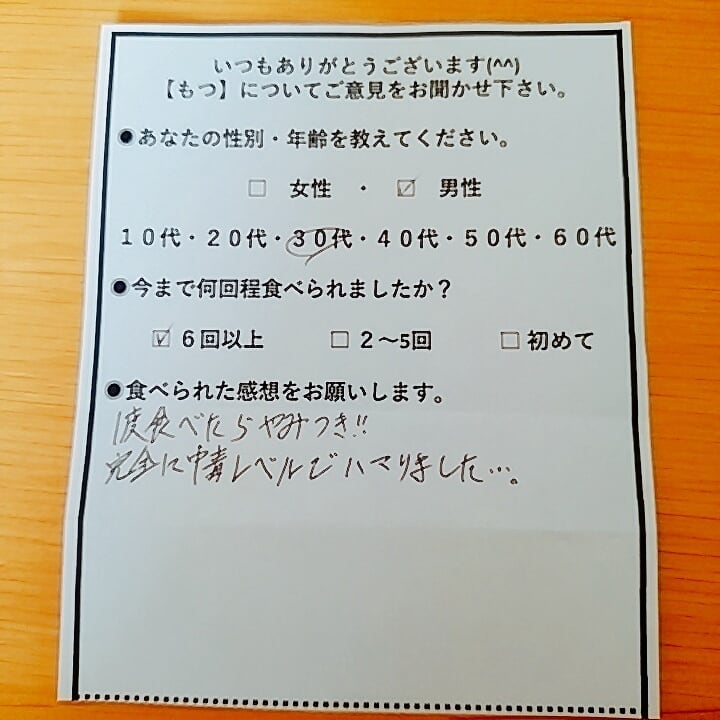 いつもありがとうございます(^^)
【もつ】についてご意見をお聞かせ下さい。
●あなたの性別・年齢を教えてください。
□ 女性 ・ ☑ 男性
10代・20代・30代・40代・50代・60代
●今まで何回程食べられましたか？
☑ 6回以上 □ 2～5回 □ 初めて
●食べられた感想をお願いします。
1度食べたらやみつき!!
完全に中毒レベルでハマりました…。